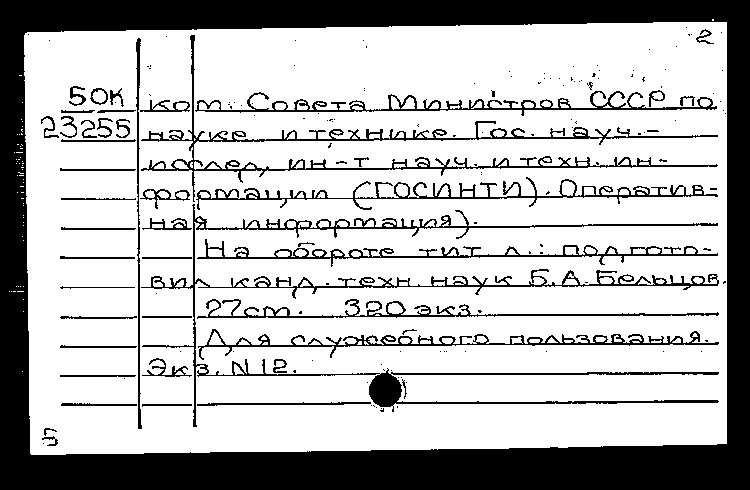 2
50К ком. Совета Министров СССР по
23255 науке и технике. Гос. науч.-
исслед, ин-т науч. и техн. ин-
формации (ГОСИНТИ). Оператив-
ная информация).
На обороте тит л.: подгото-
вил канд. техн. наук Б.А. Бельцов.
27см. 320 экз.
Для служебного пользования.
Экз. N 12.
5